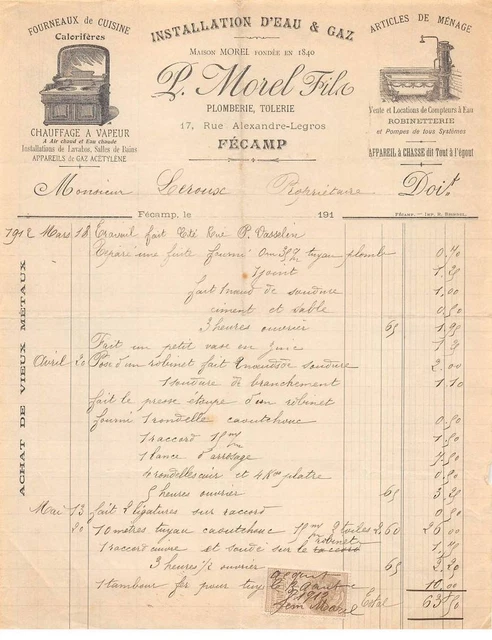 FOURNEAUX DE CUISINE
Calorifères
CHAUFFAGE A VAPEUR
A Air chaud et Eau chaude
Installations de Lavabos, Salles de Bains
APPAREILS de GAZ ACÉTYLÈNE
INSTALLATION D'EAU & GAZ
MAISON MOREL FONDÉE EN 1840
P. Morel Fils
PLOMBERIE, TOLERIE
17, Rue Alexandre-Legros
FÉCAMP
ARTICLES DE MÉNAGE
Vente et Locations de Compteurs à Eau
ROBINETTERIE
et Pompes de tous Systèmes
APPAREIL A CHASSE dit Tout à l'égout
Monsieur Leroux Propriétaire Doit
Fécamp, le 191
Fécamp. — Imp.
ACHAT DE VIEUX MÉTAUX
1912 Mars 18 Travail fait Cité Rué P. Vasselin
Réparé une fuite fourni 0m35 tuyau plomb 0.70
1 joint 1.20
fait 1 nœud de soudure 1.00
ciment et sable 0.50
3 heures ouvrier 65 1.95
Fait un petit vase en zinc
Avril 20 Pose d'un robinet fait 2 nœuds de soudure 2.00
1 soudure de branchement 1.10
fait le presse étoupe d'un robinet
fourni 1 rondelle caoutchouc 0.50
1 raccord 1.50
1 lance d'arrosage 4.50
4 rondelles cuir et 4 Kos platre
5 heures ouvrier 65 3.25
Mai 13 fait 2 ligatures sur raccord 0.50
20 10 mètres tuyau caoutchouc 3 toiles 2.60 26.00
robinet
1 raccord cuivre et soudé sur le raccord
3 heures ½ ouvrier 65 2.20
1 tambour fer pour tuyau 10.00
Total 63.50
acquit
1912
Morel